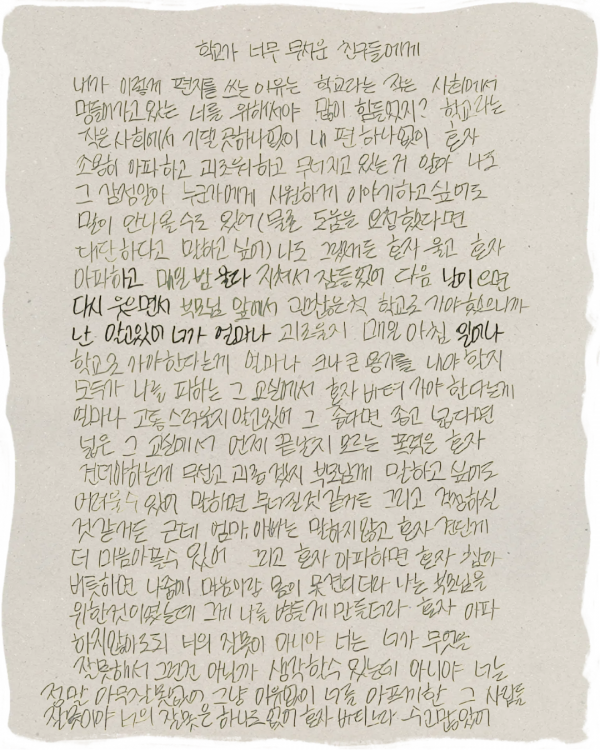 학교가 너무 무서운 친구들에게
내가 이렇게 편지를 쓰는 이유는 학교라는 작은 사회에서
멍들어가고 있는 너를 위해서야 많이 힘들었지? 학교라는
작은 사회에서 기댈 곳하나없이 내 편 하나없이 혼자
조용히 아파하고 괴로워하고 무너지고 있는거 알아 나도
그 감정알아 누군가에게 시원하게 이야기하고 싶어도
말이 안나올 수도 있어(물론 도움을 요청했다면
대단하다고 말하고 싶어) 나도 그랬거든 혼자 울고 혼자
아파하고 매일 밤 울다 지쳐서 잠들었어 다음 날이 되면
다시 웃으면서 부모님 앞에서 괜찮은척 학교로 가야했으니까
난 알고있어 너가 얼마나 괴로울지 매일 아침 일어나
학교로 가야한다는게 얼마나 크나큰 용기를 내야 할지
모두가 나를 피하는 그 교실에서 혼자 버텨 가야 한다는게
얼마나 고통스러울지 알고있어 그 좁다면 좁고 넓다면
넓은 그 교실에서 언제 끝날지 모르는 폭력을 혼자
견뎌야하는게 무섭고 괴롭겠지 부모님께 말하고 싶어도
어려울 수 있어 말하면 무너질것 같거든 그리고 걱정하실
것 같거든 근데 엄마, 아빠는 말하지않고 혼자 견딘게
더 마음아플수 있어 그리고 혼자 아파하면 혼자 참아
버릇하면 나중에 마음이랑 몸이 못견디더라 나는 부모님을
위한것이였는데 그게 나를 병들게 만들더라 혼자 아파
하지않아도돼 너의 잘못이 아니야 너는 너가 무엇을
잘못해서 그런건 아닐까 생각할수 있는데 아니야 너는
정말 아무잘못없어 그냥 이유없이 너를 아프게한 그 사람들
잘못이야 너의 잘못은 하나도 없어 혼자 버티느라 수고많았어